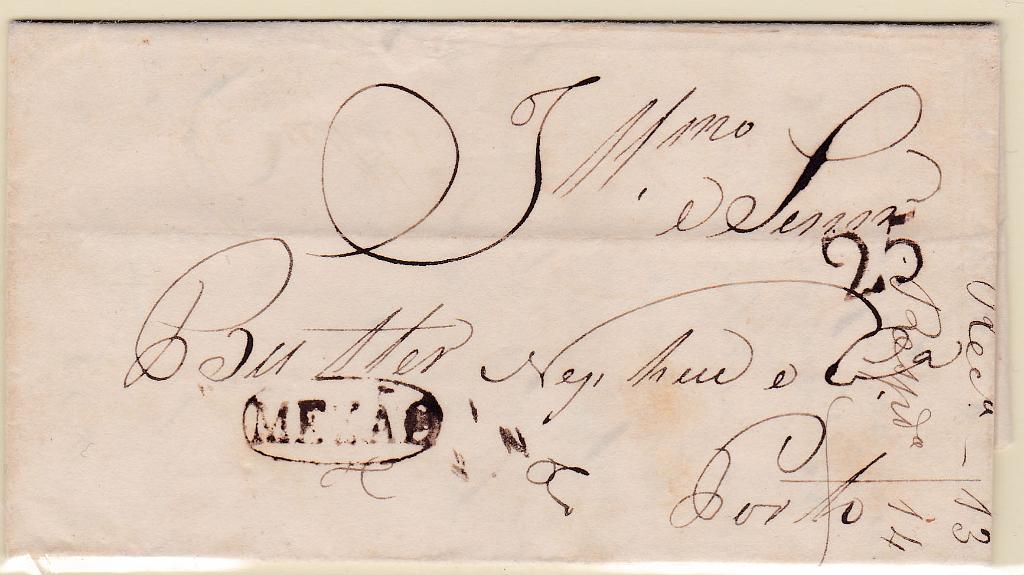 Illmo
e Senrs
25
Butler Nephew e Ca
MEZÃO
Porto
Rec.a – 13
Resp.da 14